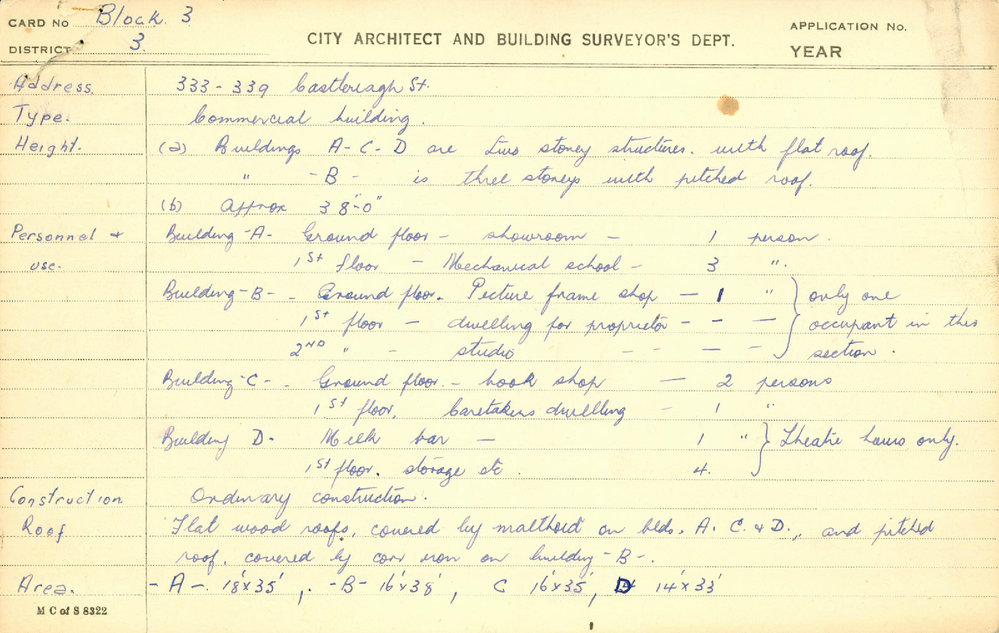 CARD No Block 3
APPLICATION No.
DISTRICT 3.
CITY ARCHITECT AND BUILDING SURVEYOR'S DEPT.
YEAR
Address. 333-339 Castlereagh St.
Type. Commercial building.
Height. (a) Buildings A-C-D are two storey structures. with flat roof.
" -B- is three storeys with pitched roof.
(b) Approx 38'-0"
Personnel + Building-A- Ground floor - showroom - 1 person.
use. 1st floor - Mechanical school - 3 ".
Building-B- - Ground floor. Picture frame shop - 1 " only one
1st floor - dwelling for proprietor - - - occupant in this
2ND " - studio - - - - section.
Building-C- - Ground floor. - book shop - 2 persons
1st floor. Caretakers dwelling - 1 "
Building D- Milk bar - 1 " Theatre hours only.
1st floor. storage etc. 4.
Construction Ordinary construction.
Roof Flat wood roofs, covered by malthoid on blds. A. C. & D., and pitched
roof, covered by corr iron on building -B-.
Area. -A-. 18'x35', -B- 16'x38', C 16'x35', D 14'x33'
M C of S 8322